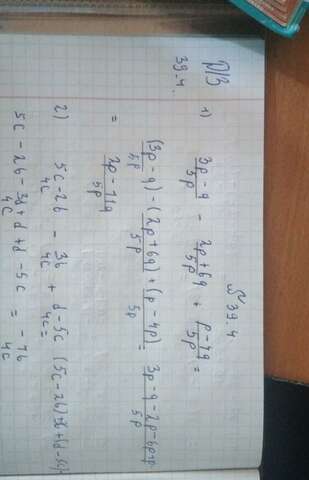 Д/З
39.4.
№39.4
1) (3p-q)/5p - (2p+6q)/5p + (p-4q)/5p =
(3p-q)-(2p+6q)+(p-4p)/5p = (3p-q-2p-6p+p)/5p
= (2p-11q)/5p
2) (5c-2b)/4c - 3b/4c + (d-5c)/4c = (5c-2b)
5c-2b-3b+d+d-5c/4c = -7b/4c